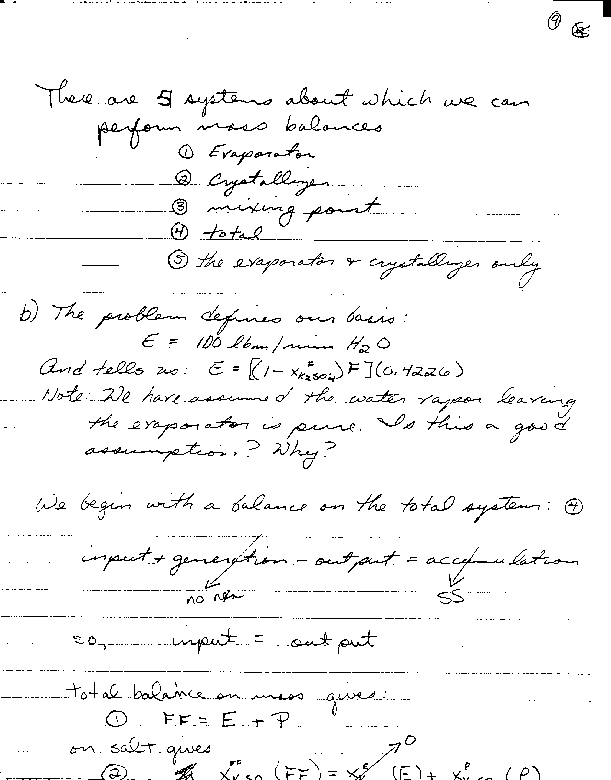 ④
There are 5 systems about which we can
perform mass balances
① Evaporator
② Crystallizer
③ mixing point
④ total
⑤ the evaporator + crystallizer only
b) The problem defines our basis:
E = 100 lbm/min H2O
And tells us: E = [(1 - x^F_K2SO4) F](0.4226)
Note: We have assumed the water vapor leaving
the evaporator is pure. Is this a good
assumption? Why?
We begin with a balance on the total system: ④
input + generation - output = accumulation
no rxn SS
so, input = output
total balance on mass gives:
① FF = E + P
on salt gives 0
② (FF) = (E) + (P)